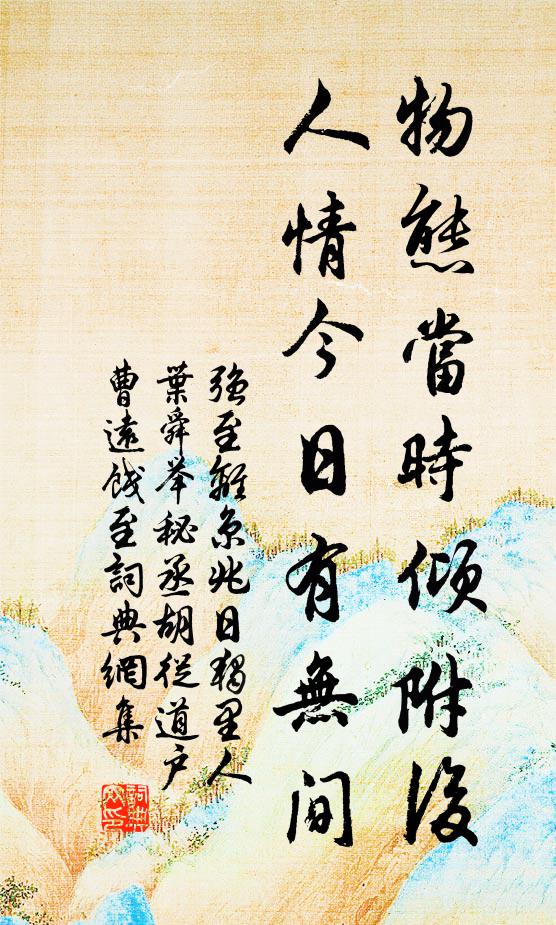 物態當時傾附後
人情今日有無間
强至離京兆日獨里人
葉舜举秘丞胡從道户
曹遠餞至詞典網集